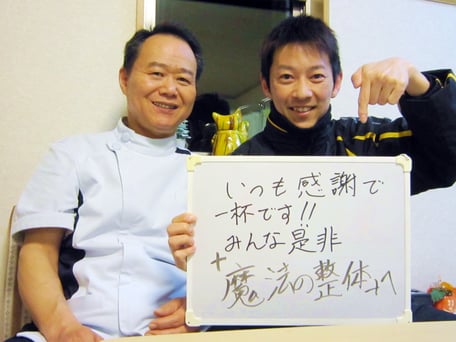 いつも感謝で
一杯です!!
みんな是非
+魔法の整体+へ